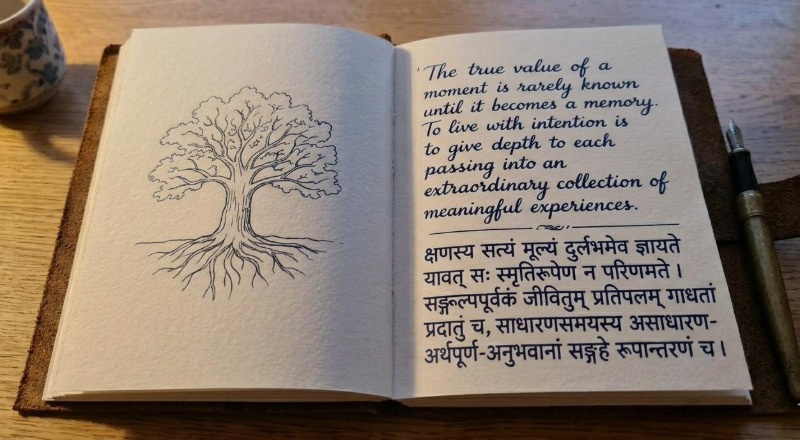 The true value of a
moment is rarely known
until it becomes a memory.
To live with intention is
to give depth to each
passing into an
extraordinary collection of
meaningful experiences.
क्षणस्य सत्यं मूल्यं दुर्लभमेव ज्ञायते
यावत् सः स्मृतिरूपेण न परिणमते ।
सङ्कल्पपूर्वकं जीवितुम् प्रतिपलम् गाधतां
प्रदातुं च, साधारणसमयस्य असाधारण-
अर्थपूर्ण-अनुभवानां सङ्ग्रहे रूपान्तरणं च ।